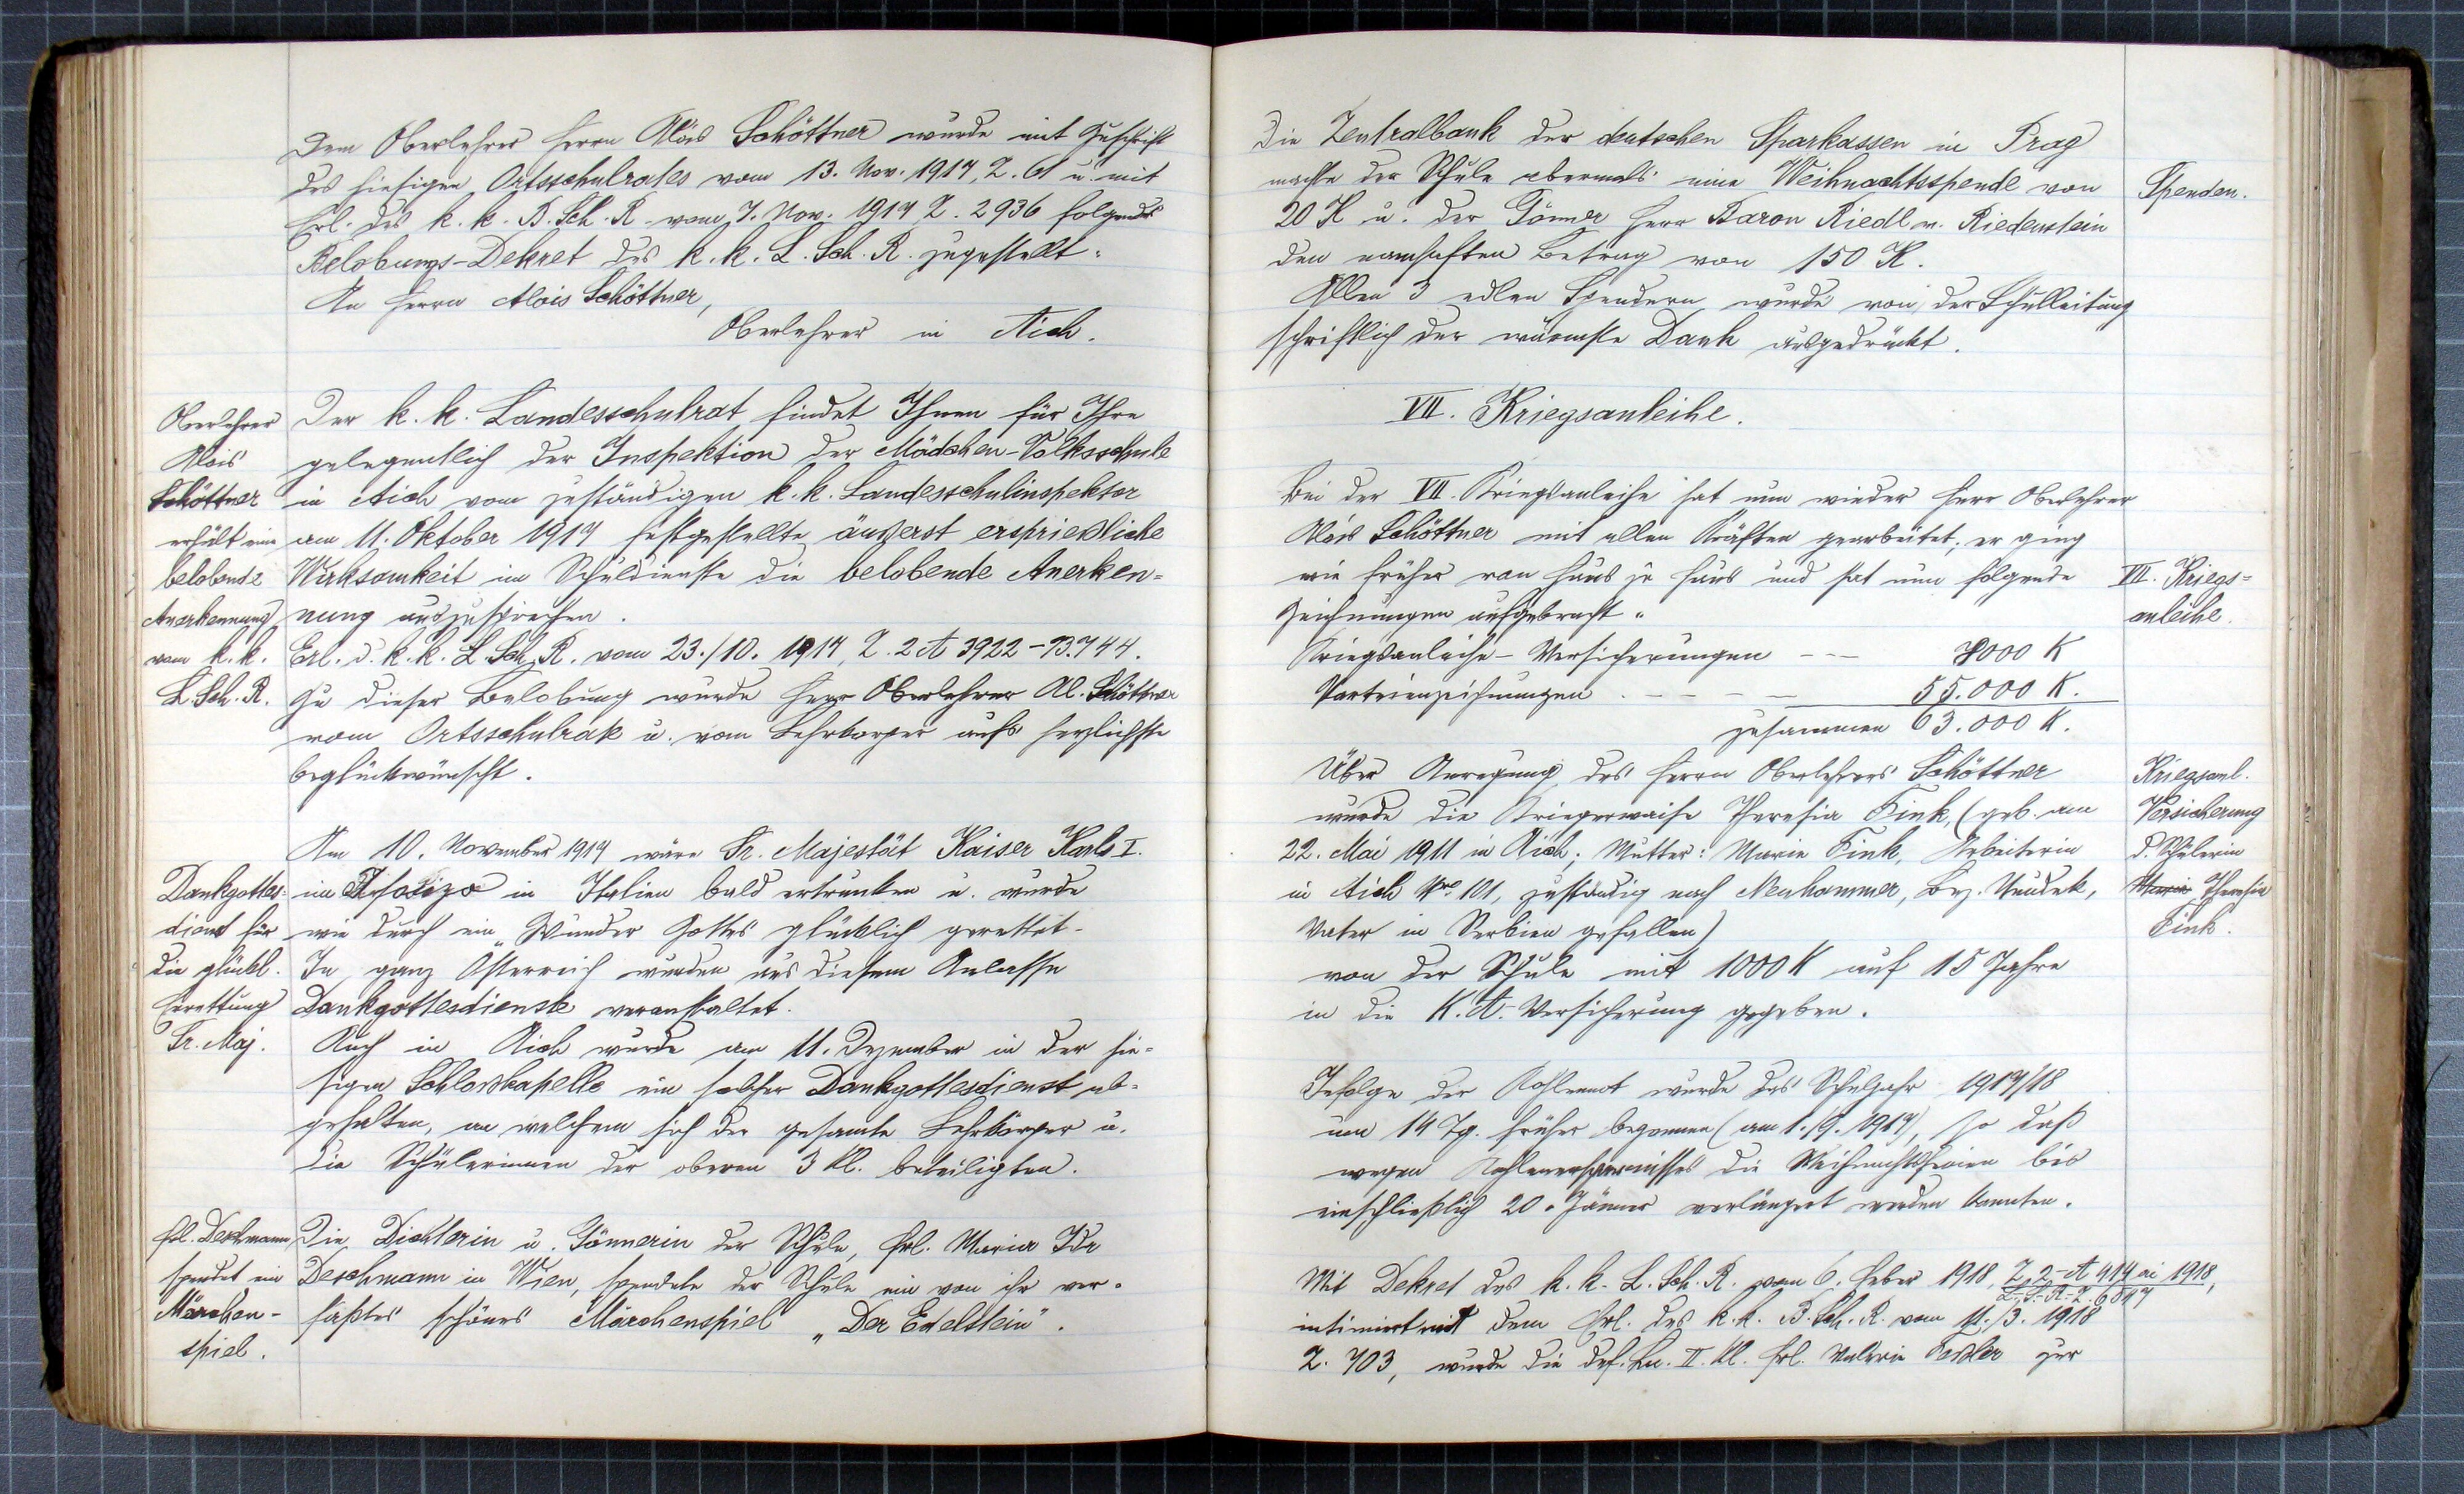 Dem Oberlehrer Herrn Alois Schöttner wurde mit Zuschrift
des hiesigen Ortsschulrates vom 13. Nov. 1917, Z. 61 u. mit
Erl. des k. k. B. Sch. R. vom 7. Nov. 1917 Z. 2936 folgendes
Belobungs-Dekret des k. k. L. Sch. R. zugestellt:
An Herrn Alois Schöttner,
Oberlehrer in Aich.
Oberlehrer
Alois
Schöttner
erhält eine
belobende
Anerkennung
vom k. k.
L. Sch. R.
Der k. k. Landesschulrat findet Ihnen für Ihre
gelegentlich der Inspektion der Mädchen-Volksschule
in Aich vom zuständigen k. k. Landesschulinspektor
am 11. Oktober 1917 festgestellte äußerst ersprießliche
Wirksamkeit im Schuldienste die belobende Anerken=
nung auszusprechen.
Erl. d. k. k. L. Sch. R. vom 23./10. 1917, Z. 2 A 3922 - B. 744.
Zu dieser Belobung wurde Herr Oberlehrer Al. Schöttner
vom Ortsschulrate u. vom Lehrkörper aufs herzlichste
beglückwünscht.
Dankgottes=
dienst für
die glückl.
Errettung
Sr. Maj.
Am 10. November 1917 wäre Sr. Majestät Kaiser Karl I.
im in Italien bald ertrunken u. wurde
wie durch ein Wunder Gottes glücklich gerettet.
In ganz Österreich wurden aus diesem Anlasse
Dankgottesdienste veranstaltet.
Auch in Aich wurde am 11. Dezember in der hie=
sigen Schloßkapelle ein solcher Dankgottesdienst ab=
gehalten, an welchem sich der gesamte Lehrkörper u.
die Schülerinnen der oberen 3 Kl. beteiligten.
Frl. Deschmann
spendet ein
Märchen-
spiel.
Die Dichterin u. Gönnerin der Schule, Frl. Maria Ida
Deschmann in Wien, spendete der Schule ein von ihr ver=
faßtes schönes Märchenspiel „Der Edelstein".
Die Zentralbank der deutschen Sparkassen in Prag
machte der Schule abermals eine Weihnachtsspende von
20 K u. der Gönner Herr Baron Riedl v. Riedenstein
den namhaften Betrag von 150 K.
Allen 3 edlen Spendern wurde von der Schulleitung
schriftlich der wärmste Dank ausgedrückt.
Spenden.
VII. Kriegsanleihe.
Bei der VII. Kriegsanleihe hat nun wieder Herr Oberlehrer
Alois Schöttner mit allen Kräften gearbeitet; er ging
wie früher von Haus zu Haus und hat nun folgende
Zeichnungen aufgebracht:
VII. Kriegs=
anleihe.
Kriegsanleihe-Versicherungen --- 8000 K
Parteienzeichnungen . - - - - 55.000 K.
zusammen 63.000 K.
Über Anregung des Herrn Oberlehrers Schöttner
wurde die Kriegerwaise Theresia Fink, (geb. am
22. Mai 1911 in Aich. Mutter: Marie Fink, Arbeiterin
in Aich No 101, zuständig nach Neuhammer, Bez. Neudek,
Vater in Serbien gefallen)
von der Schule mit 1000 K auf 15 Jahre
in die K. A.-Versicherung gegeben.
Kriegsanl.
Versicherung
d. Schülerin
Maria Theresia
Fink.
Infolge der Kohlennot wurde das Schuljahr 1917/18
um 14 Tg. früher begonnen (am 1./9. 1917), so daß
wegen Kohlenersparnisses die Weihnachtsferien bis
einschließlich 20. Jänner verlängert werden konnten.
Mit Dekret des k. k. L. Sch. R. vom 6. Feber 1918, Z. 2-A 414 ai 1918,
intimiert mit dem Erl. des k. k. B. Sch. R. vom 11./3. 1918
Z. 703, wurde die def. Ln. II. Kl. Frl. Valerie zur